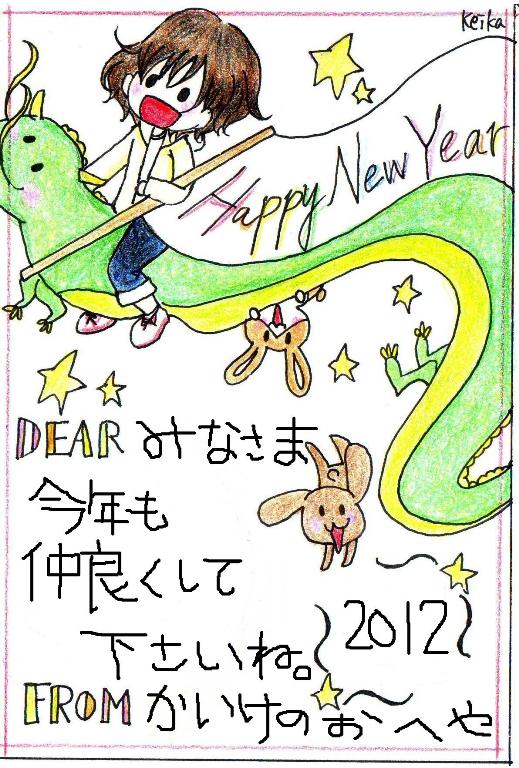 Keika
Happy New Year
DEAR みなさま
今年も
仲良くして
下さいね。
2012
FROM かいけのおへや